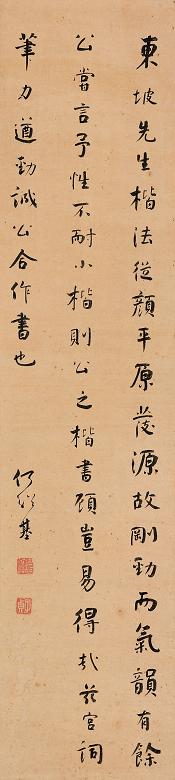 東坡先生楷法從顏平原發源故剛勁而氣韻有餘
公嘗言予性不耐小楷則公之楷書頋豈易得哉茲宮詞
筆力遒勁誠公合作書也
何紹基